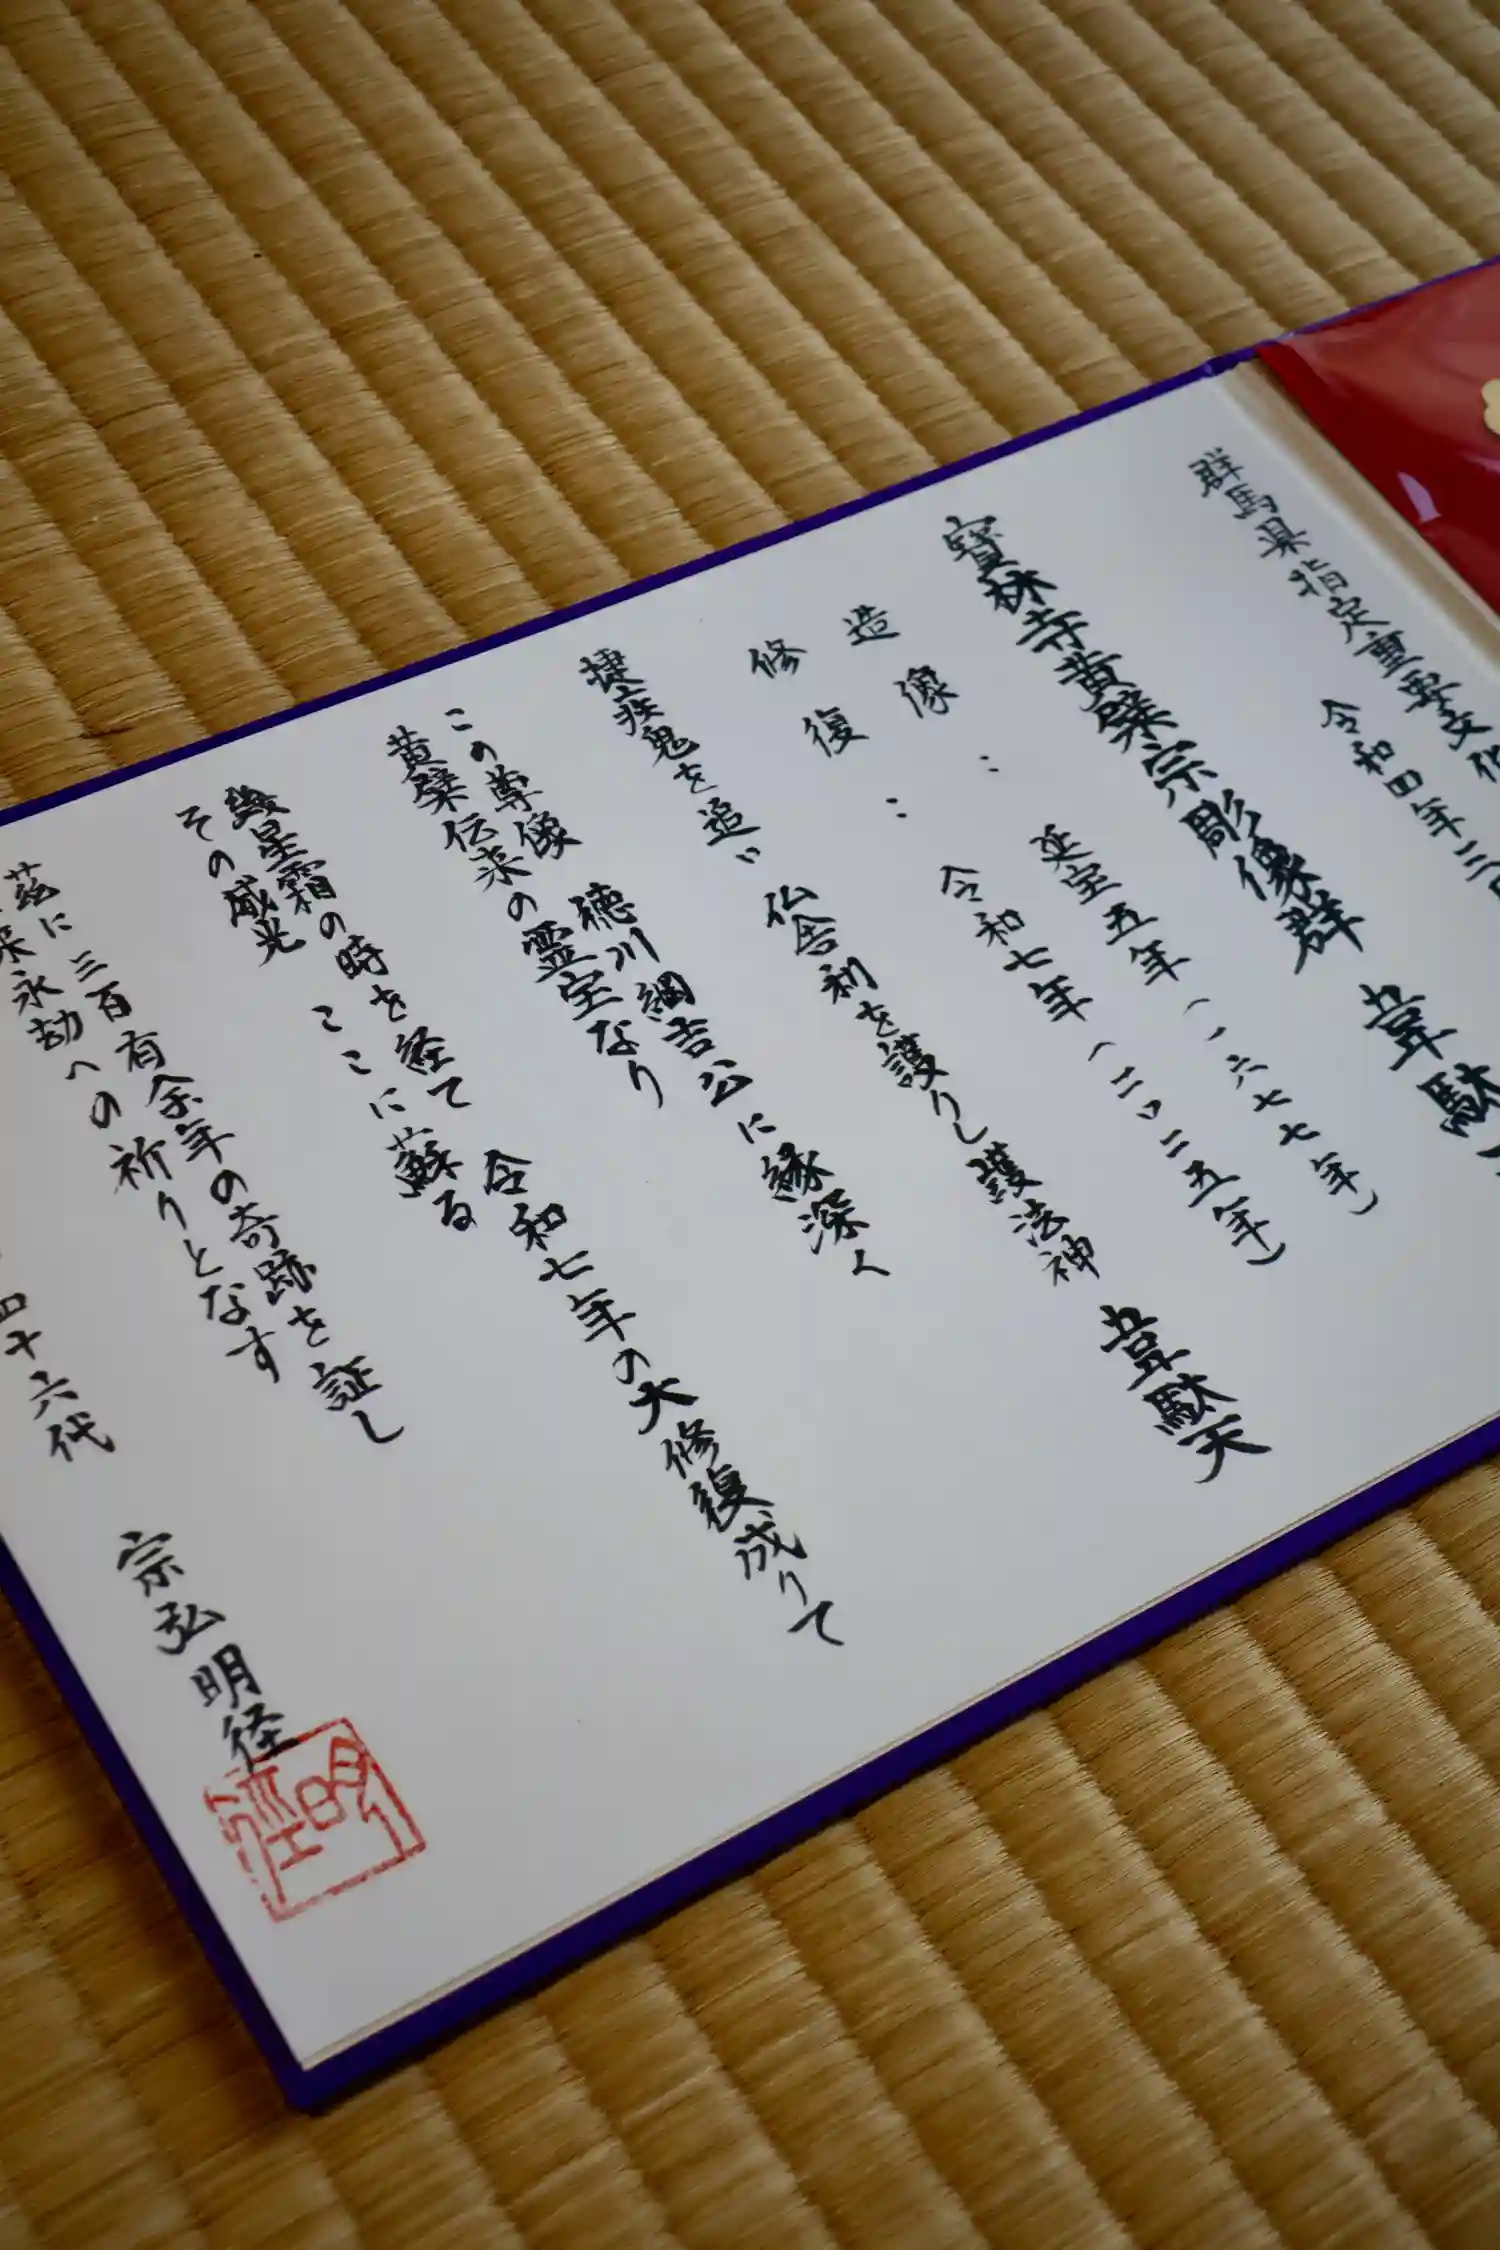 群馬県指定重要文化
令和四年三
寶林寺黄檗宗彫像群 韋駄
造像：延宝五年（一六七七年）
修復：令和七年（二〇二五年）
捷疾鬼を追い 仏舎利を護りし護法神 韋駄天
この尊像 徳川綱吉公に縁深く
黄檗伝来の霊宝なり
幾星霜の時を経て 令和七年の大修復成りて
その威光 ここに蘇る
茲に三百有余年の奇跡を証し
来永劫への祈りとなす
四十六代 宗弘明径
明径